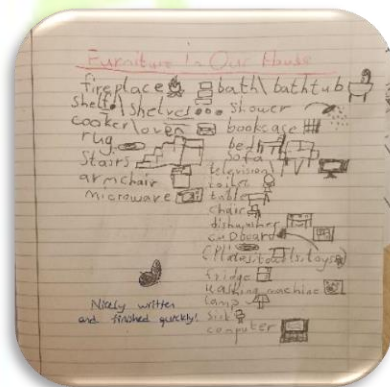 Furniture in Our House
fireplace
shelf\shelves
cooker\oven
rug
stairs
armchair
microwave
bath\bathtub
shower
bookcase
bed
sofa
television
toilet
table
chair
dishwasher
cupboard
(plates, towels, toys)
fridge
washing machine
lamp
sink
computer
Nicely written
and finished quickly!